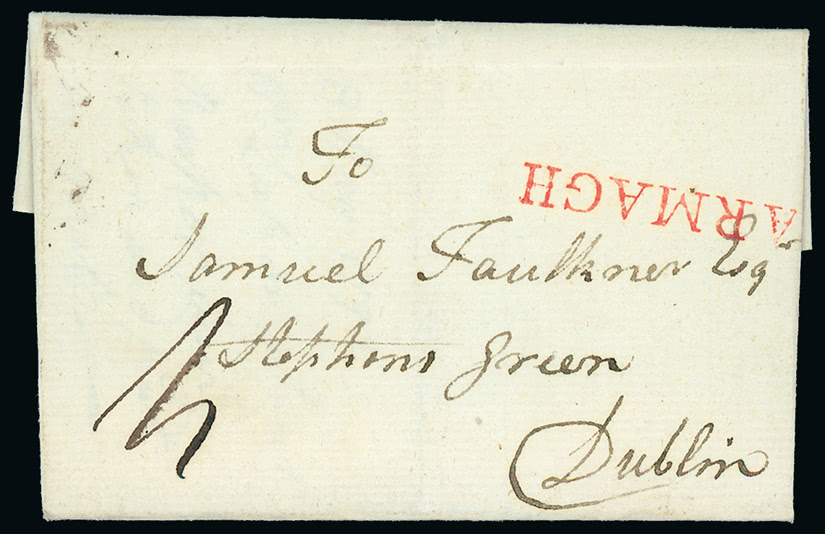 To
ARMAGH
Samuel Faulkner Esqr
Stephens Green
Dublin